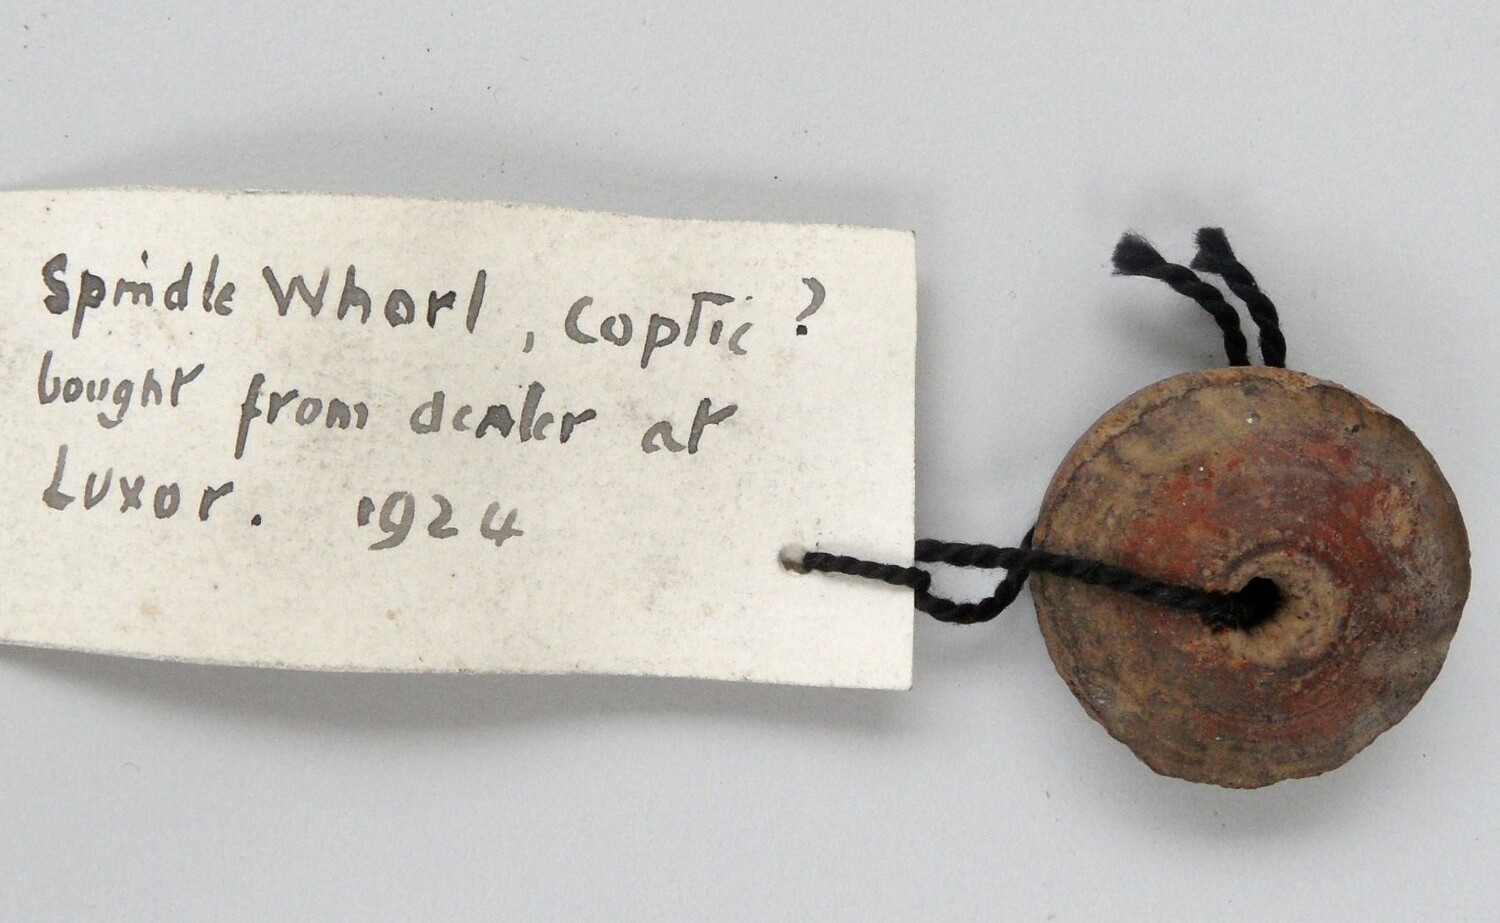 Spindle Whorl, Coptic?
bought from dealer at
Luxor. 1924